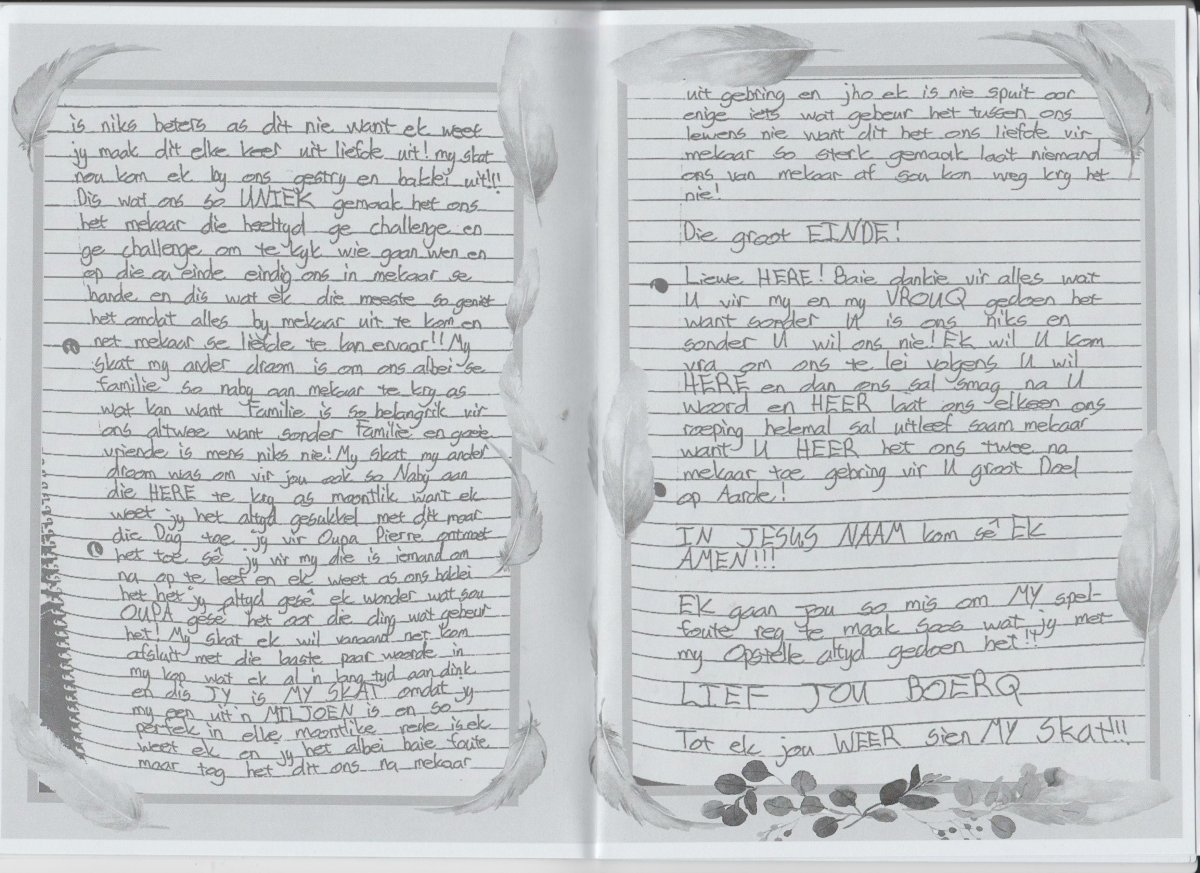 is niks beters as dit nie want ek weet
jy maak dit elke keer uit liefde uit! my skat
nou kom ek by ons gestry en baklei uit!!!
Dis wat ons so UNIEK gemaak het ons
het mekaar die heeltyd ge challenge en
ge challenge om te kyk wie gaan wen en
op die ou einde eindig ons in mekaar se
hande en dis wat ek die meeste so geniet
het omdat alles by mekaar uit te kom en
net mekaar se liefde te kan ervaar!! My
skat my ander droom is om ons albei se
familie so naby aan mekaar te krg as
wat kan want Familie is so belangrik vir
ons altwee want sonder Familie en goeie
vriende is mens niks nie! My skat my ander
droom was om vir jou ook so Naby aan
die HERE te krg as moontlik want ek
weet jy het altyd gesukkel met dit maar
die Dag toe jy vir Oupa Pierre ontmoet
het toe sê jy vir my die is iemand om
na op te leef en ek weet as ons baklei
het het jy altyd gesê ek wonder wat sou
OUPA gesê het oor die ding wat gebeur
het! My skat ek wil vanaand net kom
afsluit met die laaste paar woorde in
my kop wat ek al 'n lang tyd aan dink
en dis JY is MY SKAT omdat jy
my een uit 'n MILJOEN is en so
perfek in elke moontlike rede is ek
weet ek en jy het albei baie foute
maar tog het dit ons na mekaar
uit gebring en jho ek is nie spuit oor
enige iets wat gebeur het tussen ons
lewens nie want dit het ons liefde vir
mekaar so sterk gemaak laat niemand
ons van mekaar af sou kon weg krg het
nie!
Die groot EINDE!
Liewe HERE! Baie dankie vir alles wat
U vir my en my VROUQ gedoen het
want sonder U is ons niks en
sonder U wil ons nie! Ek wil U kom
vra om ons te lei volgens U wil
HERE en dan ons sal smag na U
woord en HEER laat ons elkeen ons
roeping helemal sal uitleef saam mekaar
want U HEER het ons twee na
mekaar toe gebring vir U groot Doel
op Aarde!
IN JESUS NAAM kom sê EK
AMEN!!!
EK gaan jou so mis om MY spel-
foute reg te maak soos wat jy met
my Opstelle altyd gedoen het!!
LIEF JOU BOERQ
Tot ek jou WEER sien MY Skat!!!